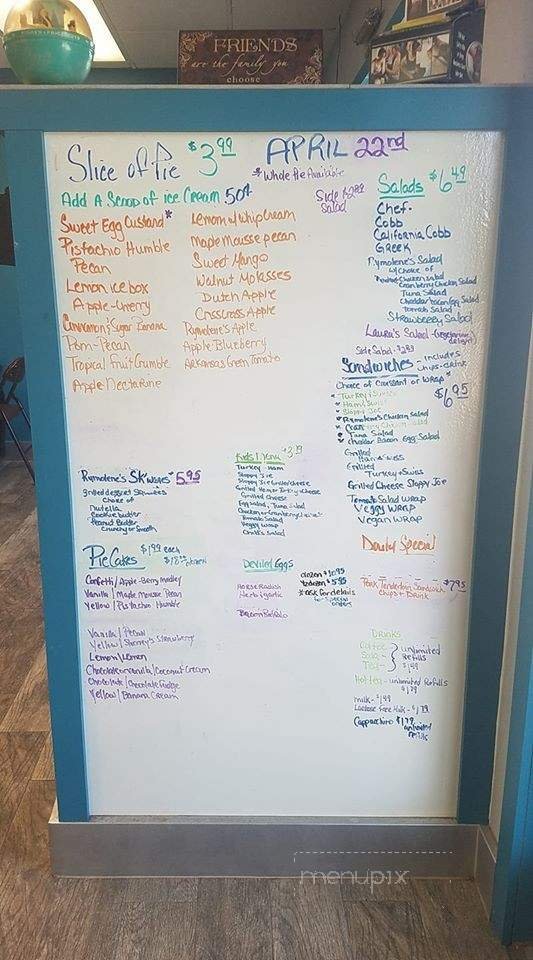 FRIENDS
are the family you
choose
Slice of Pie $3.99
APRIL 22nd
*Whole Pie Available
Add A Scoop of ice Cream 50¢
Sweet Egg Custard*
Pistachio Humble
Pecan
Lemon ice box
Apple-Cherry
Cinnamon & Sugar Banana
Pom-Pecan
Tropical Fruit Crumble
Apple Nectarine
Lemon w/ Whip Cream
Maple Mousse pecan
Sweet Mango
Walnut Molasses
Dutch Apple
Crisscross Apple
Rymolene's Apple
Apple Blueberry
Arkansas Green Tomato
Side $2.89
Salad
Salads $6.49
Chef-
Cobb
California Cobb
Greek
Rymolene's Salad
w/ Choice of
Chicken Salad
Cranberry Chicken Salad
Tuna Salad
Cheddar bacon Egg Salad
Tomato Salad
Strawberry Salad
Laura's Salad - (vegetarian delight)
Side Salad - $2.89
Sandwiches - includes
chips + drink
Choice of Croissant or WRAP* $6.95
Turkey & Swiss
Ham & Swiss
Sloppy Joe
Rymolene's Chicken Salad
Cranberry Chicken Salad
Tuna Salad
Cheddar Bacon Egg Salad
Grilled
Ham & Swiss
Grilled
Turkey & Swiss
Grilled Cheese Sloppy Joe
Tomato Salad WRAP
Veggy WRAP
Vegan WRAP
Daily Special
Pork Tenderloin Sandwich $7.95
Chips + Drink
Rymolene's SK'wiches $5.95
grilled dessert Sk'wiches
Choice of
Nutella
Cookie butter
Peanut Butter
Crunchy or Smooth
Kids Menu $3.99
Turkey - Ham
Sloppy Joe
Sloppy Joe Grilled Cheese
Grilled Ham or Turkey Cheese
Grilled Cheese
Egg Salad, Tuna Salad
Chicken or Cranberry Chicken
Tomato Salad
Veggy Wrap
Child's Salad
PieCakes $1.99 each
Confetti / Apple-Berry Medley
Vanilla / Maple Mousse Pecan
Yellow / Pistachio Humble
Vanilla / Pecan
Yellow / Sherry's Strawberry
Lemon / Lemon
Chocolate or Vanilla / Coconut Cream
Chocolate / Chocolate Fudge
Yellow / Banana Cream
Deviled Eggs
dozen $10.95
½ dozen $5.95
*ask for details
for special
orders
Horse Radish
Herb & garlic
Bacon Buffalo
Drinks
Coffee
Soda
Tea
unlimited
Refills
$1.49
Hot tea - unlimited Refills
$1.79
milk - $1.49
Lactose Free Milk - $1.79
Cappuccino $1.79 unlimited
refills
menupix